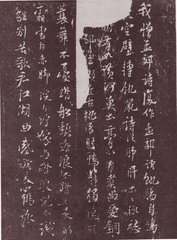 我憎孟郊詩復作孟郊語飢腸自鳴
空壁轉飢鼠詩從肺腑出出輒
河魚出膏以自煮尚愛銅
近古桃弓射鴨罷獨速短
蓑舞不憂踏船翻踏浪不踏土吳姬
霜雪白赤腳浣白紵嫁與踏浪兒不識
離別苦歌君江湖曲感我長羈旅